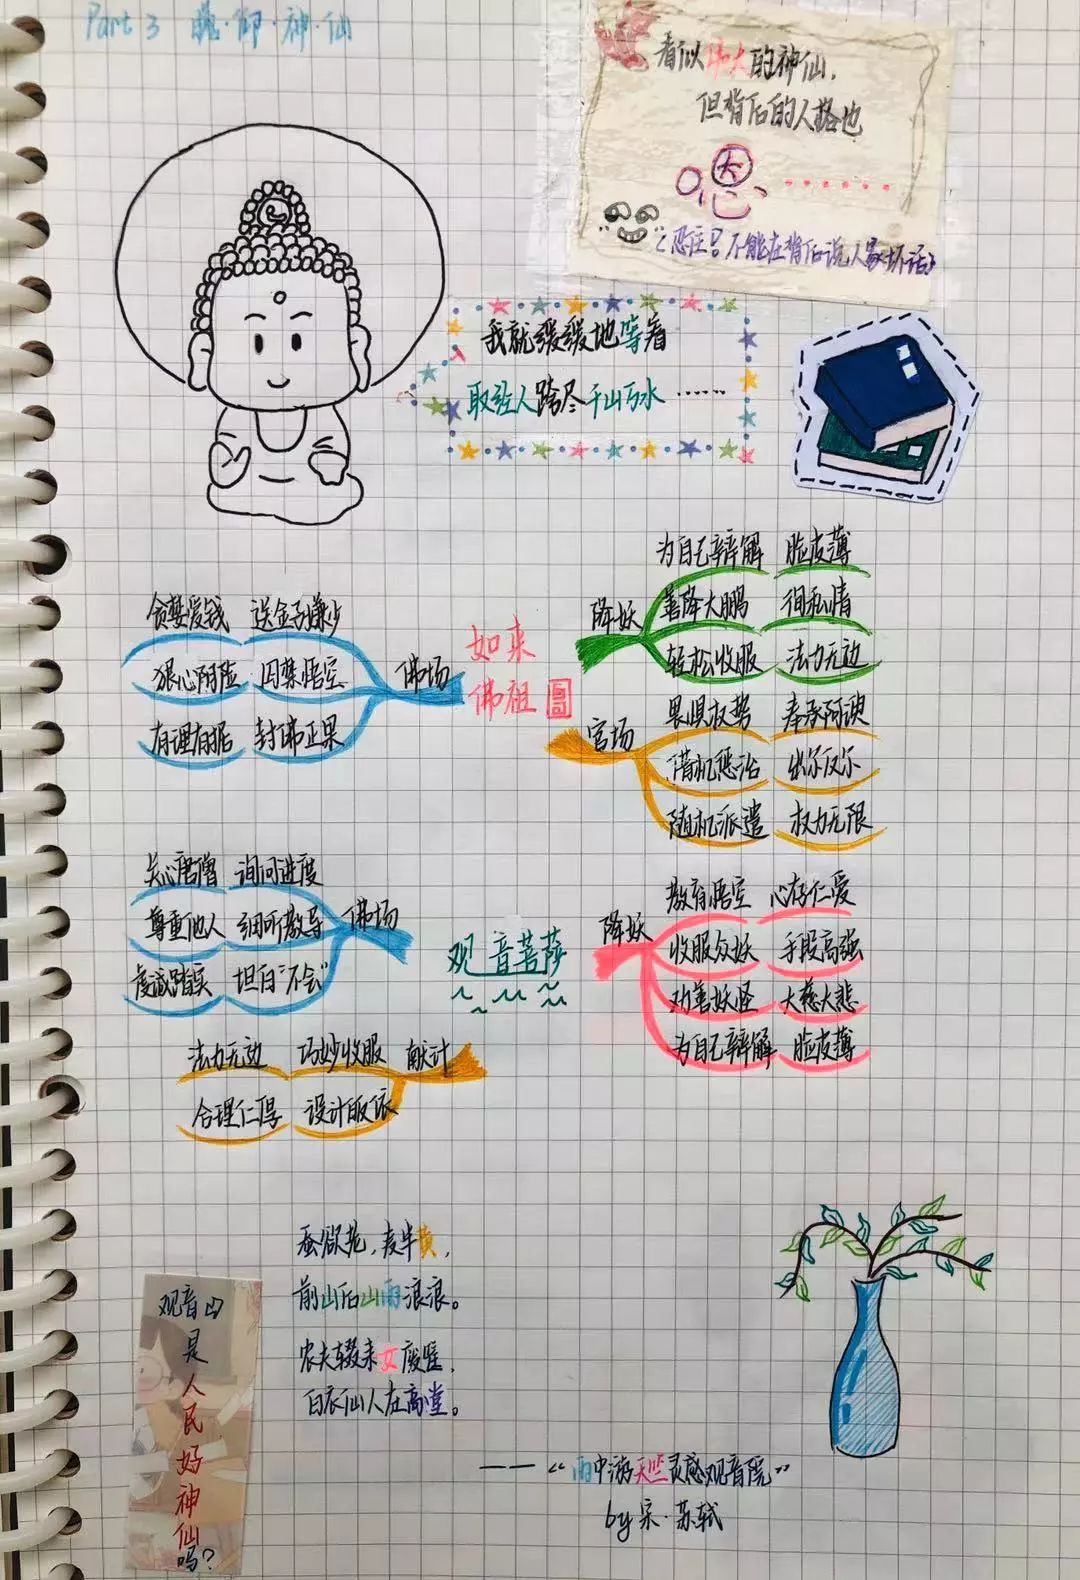 Part 3 瞻·仰·神·仙
看似伟大的神仙,
但背后的人格也
嗯、······
(忍住!不能在背后说人家坏话)
我就缓缓地等着
取经人跨尽千山万水……
如来
佛祖
佛场
贪婪爱钱 送金子嫌少
狠心阴险 囚禁悟空
有理有据 封佛正果
降妖
为自己辩解 脸皮薄
善降大鹏 徇私情
轻松收服 法力无边
官场
畏惧权势 奉承阿谀
借机惩治 出尔反尔
随机派遣 权力无限
观音菩萨
佛场
关心唐僧 询问进度
尊重他人 细听教导
虔诚踏实 坦白"不会"
献计
法力无边 巧妙收服
合理仁厚 设计皈依
降妖
教育悟空 心存仁爱
收服众妖 手段高强
劝善妖怪 大慈大悲
为自己辩解 脸皮薄
观音
是人民好神仙吗?
蚕欲老,麦半黄,
前山后山雨浪浪。
农夫辍耒女废筐,
白衣仙人在高堂。
——《雨中游天竺灵感观音院》
by 宋·苏轼